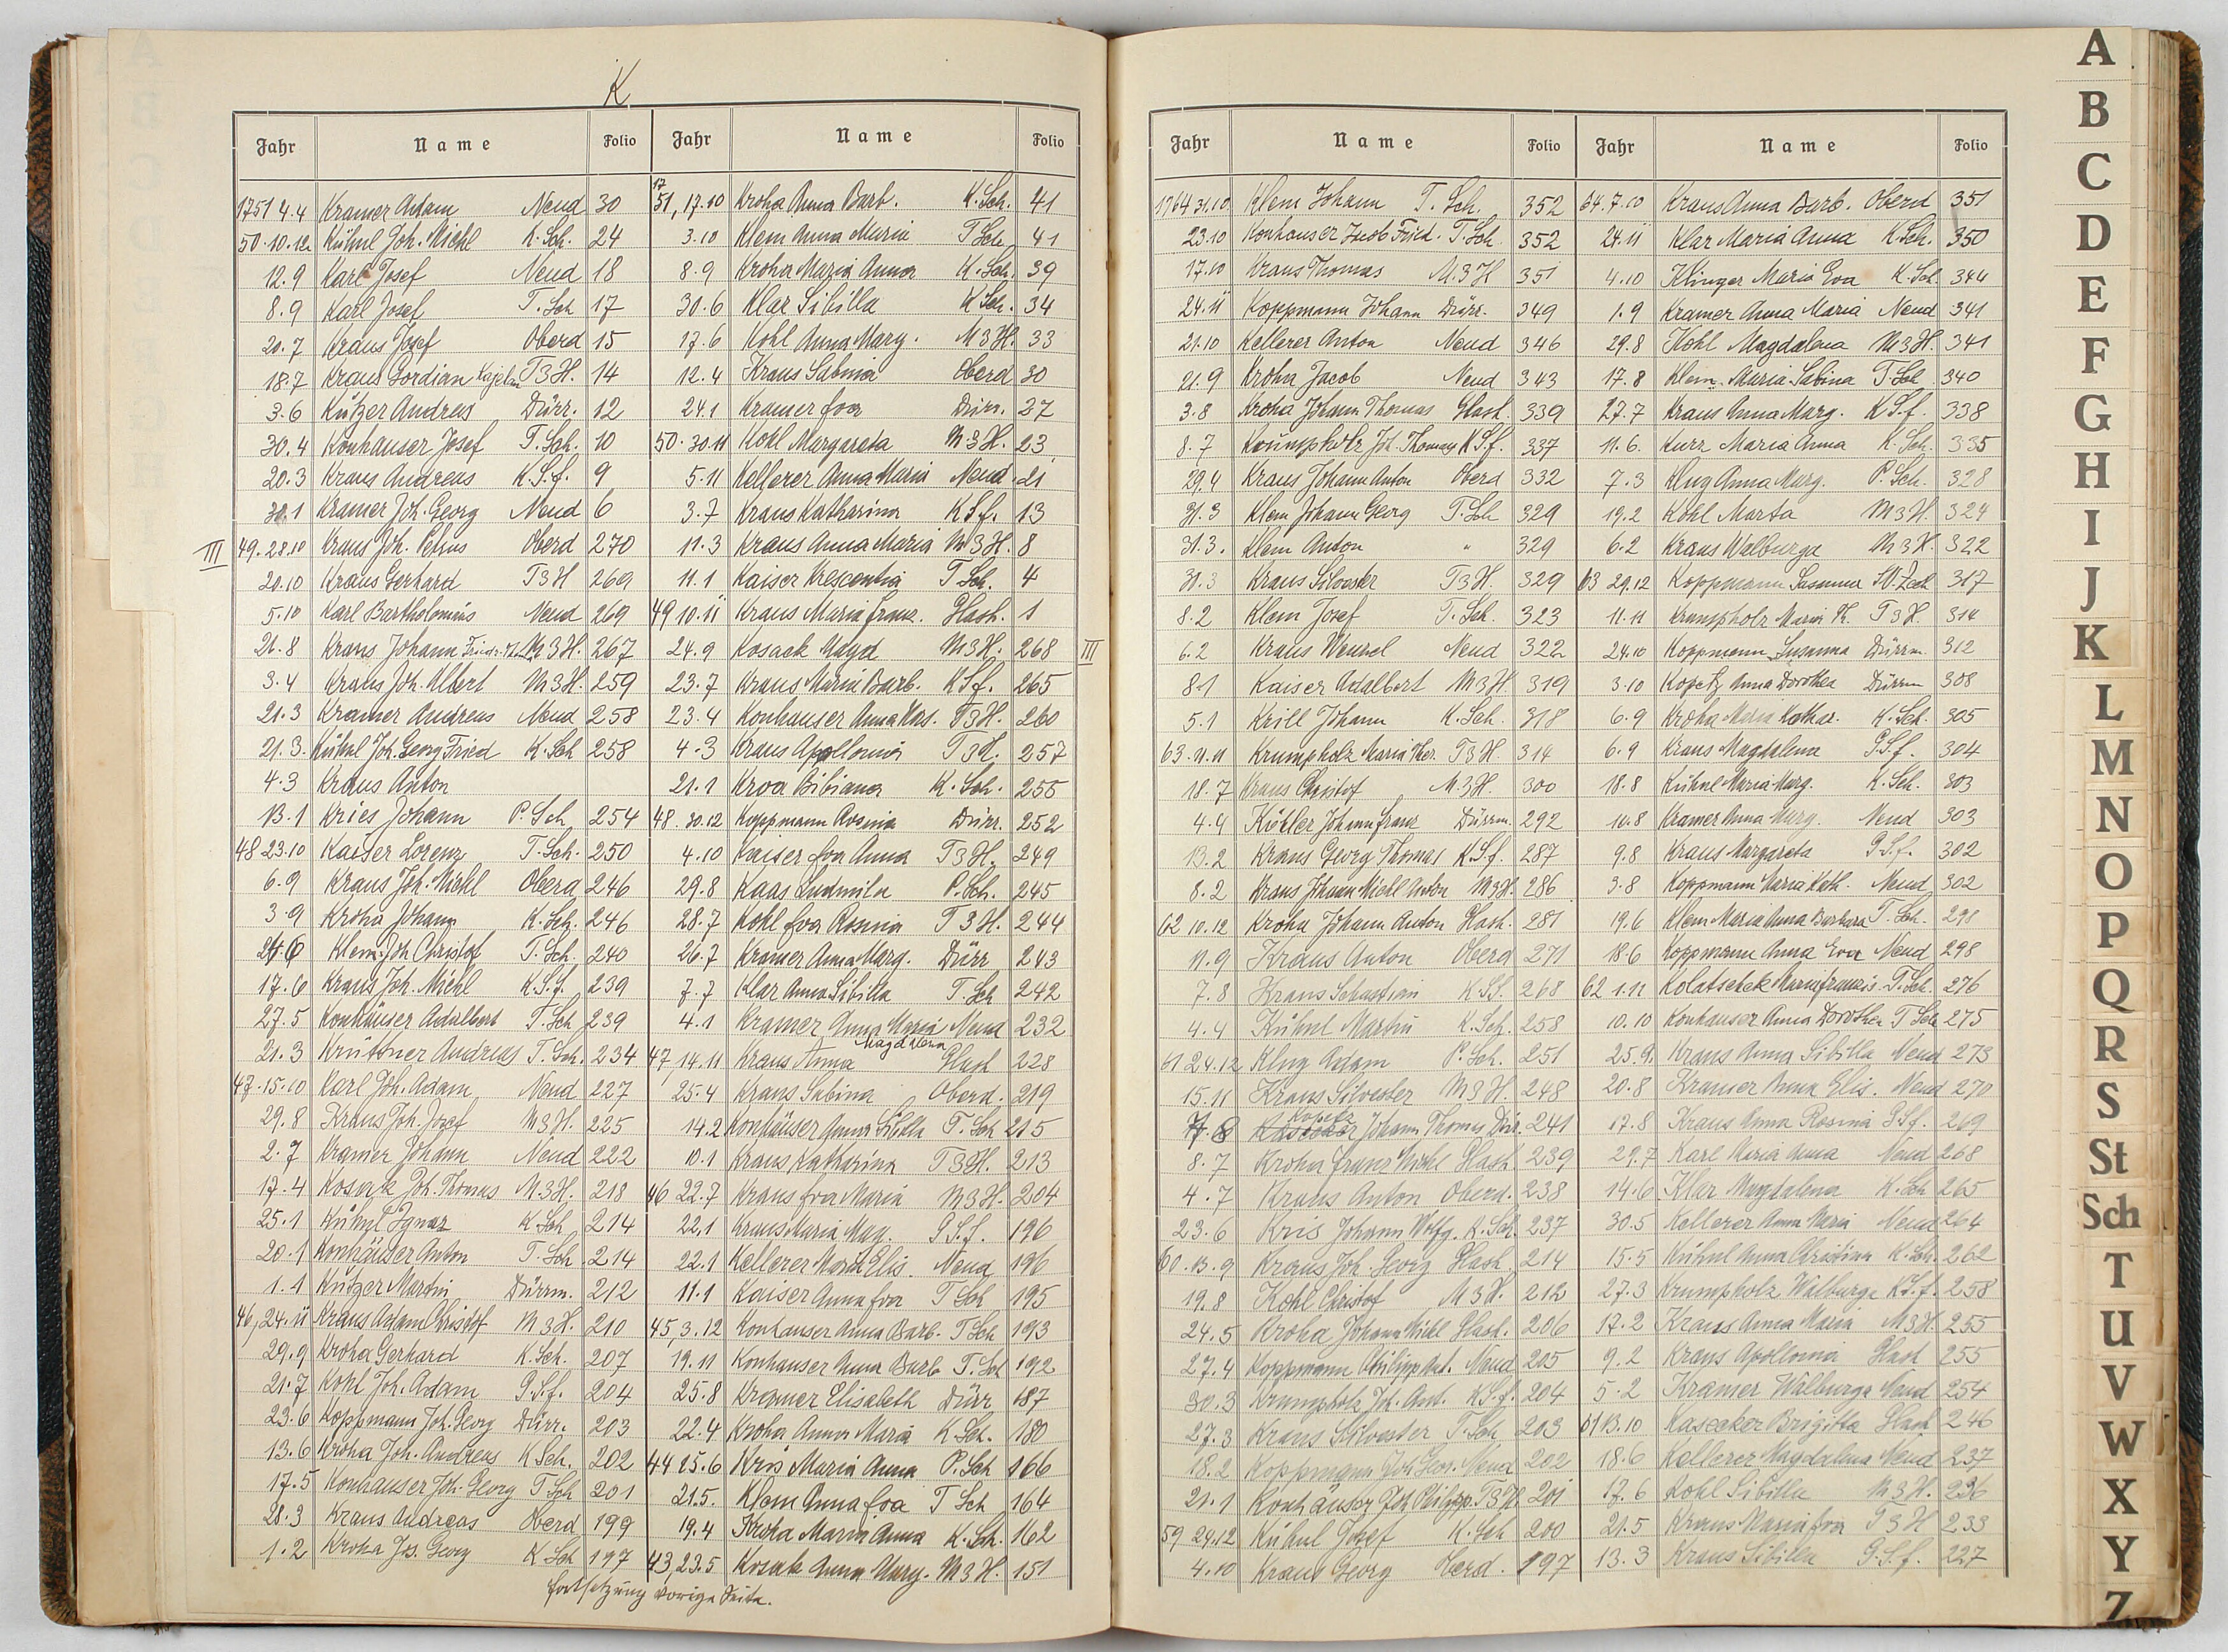 K
Fahr Name Folio Fahr Name Folio
1751 4.4 Kramer Adam Neud 30
50.10.12 Kühnl Joh. Michl K.Sch. 24
12.9 Karl Josef Neud 18
8.9 Karl Josef T.Sch 17
20.7 Kraus Josef Oberd 15
18.7 Kraus Gordian Kajetan T3H. 14
3.6 Kützer Andreas Dürr. 12
30.4 Konhäuser Josef T.Sch. 10
20.3 Kraus Andreas K.S.f. 9
30.1 Kramer Joh. Georg Neud 6
III 49.28.10 Kraus Joh. Petrus Oberd 270
20.10 Kraus Gerhard T3H 269
5.10 Karl Bartholomäus Neud 269
21.8 Kraus Johann M3H. 267
3.4 Kraus Joh. Albert M3H. 259
21.3 Kramer Andreas Neud 258
21.3. Kühnl Joh. Georg Fried K.Sch 258
4.3 Kraus Anton
13.1 Kries Johann P.Sch 254
48 23.10 Kaiser Lorenz T.Sch. 250
6.9 Kraus Joh. Michl Oberd 246
3.9 Kroha Johann K.Sch. 246
Klem Joh Christof T.Sch. 240
17.6 Kraus Joh. Michl K.S.f. 239
27.5 Konhäuser Adalbert T.Sch 239
21.3 Krüttner Andreas T.Sch. 234
47.15.10 Karl Joh. Adam Neud 227
29.8 Kraus Joh. Josef M3H. 225
2.7 Kramer Johann Neud 222
17.4 Kosak Joh. Thomas M3H. 218
25.1 Kühnl Ignaz K Sch 214
20.1 Konhäuser Anton T.Sch. 214
1.1 Kützer Martin Dürrm. 212
46, 24.11 Kraus Adam Christof M3H. 210
29.9 Kroha Gerhard K.Sch. 207
21.7 Kohl Joh. Adam P.S.f. 204
23.6 Koppmann Joh. Georg Dürr. 203
13.6 Kroha Joh. Andreas K Sch. 202
17.5 Konhäuser Joh. Georg T Sch 201
28.3 Kraus Andreas Oberd 199
1.2 Kroha Jos. Georg K Sch 197
Fortsetzung vorige Seite.
17
51, 17.10 Kroha Anna Barb. K.Sch. 41
3.10 Klem Anna Maria T Sch 41
8.9 Kroha Maria Anna K.Sch. 39
30.6 Klar Sibilla K Sch. 34
17.6 Kohl Anna Marg. M3H. 33
12.4 Kraus Sabina Oberd 30
24.1 Kramer Eva Dürr. 27
50.30.11 Kohl Margareta M3H. 23
5.11 Kellerer Anna Maria Neud. 21
3.7 Kraus Katharina K S.f. 13
11.3 Kraus Anna Maria M3H. 8
11.1 Kaiser Krescentia T Sch. 4
49 10.11 Kraus Maria Franz. Glash. 1
24.9 Kosack Magd M3H. 268 III
23.7 Kraus Maria Barb. K S f. 265
23.4 Konhauser Anna Kas. T3H. 260
4.3 Kraus Apollonia T3H. 257
21.1 Kroa Bibiana K.Sch. 255
48.30.12 Koppmann Rosina Dürr. 252
4.10 Kaiser Eva Anna T3H. 249
29.8 Kaas Ludmila P.Sch. 245
28.7 Kohl Eva Rosina T3H. 244
26.7 Kramer Anna Marg. Dürr 243
7.7 Klar Anna Sibilla T.Sch 242
4.1 Kramer Anna Maria Neud 232
Magdalena
47, 14.11 Kraus Anna Glash 228
25.4 Kraus Sabina Oberd. 219
14.2 Konhäuser Anna Sibilla T.Sch 215
10.1 Kraus Katharina T3H. 213
46 22.7 Kraus Eva Maria M3H. 204
22.1 Kraus Maria Mag. P.S.f. 196
22.1 Kellerer Maria Elis. Neud 196
11.1 Kaiser Anna Eva T Sch 195
45, 3.12 Konhauser Anna Barb. T Sch 193
19.11 Konhauser Anna Barb T.Sch 192
25.8 Kramer Elisabeth Dürr 187
22.4 Kroha Anna Maria K.Sch. 180
44 25.6 Kris Maria Anna P.Sch 166
21.5. Klem Anna Eva T Sch 164
19.4 Kroha Maria Anna K.Sch. 162
43, 23.5 Kosak Anna Marg. M3H. 151
Fahr Name Folio Fahr Name Folio
1764 31.10 Klem Johann T.Sch. 352
23.10 Konhauser Jacob Fried. T.Sch 352
17.10 Kraus Thomas M.3H 351
24.11 Koppmann Johann Dürr. 349
21.10 Kellerer Anton Neud 346
21.9 Kroha Jacob Neud 343
3.8 Kroha Johann Thomas Glash. 339
8.7 Krumpholz Joh. Thomas K S f. 337
29.4 Kraus Johann Anton Oberd 332
31.3 Klem Johann Georg T.Sch 329
31.3. Klem Anton " 329
31.3 Kraus Silvester T3H. 329
8.2 Klem Josef T.Sch. 323
6.2 Kraus Wenzel Neud 322
8.1 Kaiser Adalbert M3H. 319
5.1 Krill Johann K.Sch. 318
63.11.11 Krumpholz Maria Ther. T3H. 314
18.7 Kraus Christof M.3H. 300
4.4 Köhler Johann Franz Dürrm. 292
13.2 Kraus Georg Thomas K S f. 287
8.2 Kraus Johann Michl Anton M3H. 286
62 10.12 Kroha Johann Anton Glash. 281
11.9 Kraus Anton Oberd 271
7.8 Kraus Sebastian K S f. 268
4.4 Kühnl Martin K.Sch. 258
61 24.12 Klug Adam P.Sch. 251
15.11 Kraus Silvester M3H. 248
Kopetz
Johann Thomas Dür. 241
8.7 Kroha Franz Michl Glash. 239
4.7 Kraus Anton Oberd. 238
23.6 Kris Johann Wolfg. K.Sch. 237
60.13.9 Kraus Joh. Georg Glash. 214
19.8 Kohl Christof M3H. 212
24.5 Kroha Johann Michl Glash. 206
27.4 Koppmann Philipp Ant. Neud 205
30.3 Krumpholz Joh. Ant. K S f. 204
27.3 Kraus Silvester T.Sch 203
18.2 Koppmann Joh Geor. Neud 202
21.1 Konhäuser Joh Philipp. T3H. 201
59 29.12 Kühnl Josef K.Sch 200
4.10 Kraus Georg Oberd. 197
64.7.10 Kraus Anna Barb. Oberd 351
24.11 Klar Maria Anna K.Sch. 350
4.10 Klinger Maria Eva K.Sch. 344
1.9 Kramer Anna Maria Neud 341
29.8 Kohl Magdalena M3H. 341
17.8 Klem Maria Sabina T Sch 340
27.7 Kraus Anna Marg. K S.f. 338
11.6. Kurz Maria Anna K.Sch. 335
7.3 Klug Anna Marg. P.Sch. 328
19.2 Kohl Marta M3H. 324
6.2 Kraus Walburga M3H. 322
63 29.12 Koppmann Susanna 317
11.11 Krumpholz Maria Th. T3H. 314
24.10 Koppmann Susanna Dürrm. 312
3.10 Kopetz Anna Dorothea Dürrm 308
6.9 Kroha Maria Kathar. K.Sch. 305
6.9 Kraus Magdalena P.S.f. 304
18.8 Kühnl Maria Marg. K.Sch. 303
10.8 Kramer Anna Marg. Neud 303
9.8 Kraus Margareta P.S.f. 302
3.8 Koppmann Maria Kath. Neud 302
19.6 Klem Maria Anna Barbara T.Sch. 298
18.6 Koppmann Anna Eva Neud 298
62 1.11 Kolatschek Maria Franzis. P.Sch. 276
10.10 Konhauser Anna Dorothea T Sch 275
25.9. Kraus Anna Sibilla Neud 273
20.8 Kramer Anna Elis. Neud 270
17.8 Kraus Anna Rosina P S f. 269
29.7 Karl Maria Anna Neud 268
14.6 Klar Magdalena K.Sch 265
30.5 Kellerer Anna Maria Neud 264
15.5 Kühnl Anna Christina K.Sch. 262
27.3 Krumpholz Walburga K S.f. 258
17.2 Kraus Anna Maria M3H. 255
9.2 Kraus Apollonia Glash 255
5.2 Kramer Walburga Neud 254
61 13.10 Brigitta Glash 246
18.6 Kellerer Magdalena Neud 237
17.6 Kohl Sibilla M3H. 236
21.5 Kraus Maria Eva T3H 233
13.3 Kraus Sibilla P.S.f. 227
A
B
C
D
E
F
G
H
I
J
K
L
M
N
O
P
Q
R
S
St
Sch
T
U
V
W
X
Y
Z